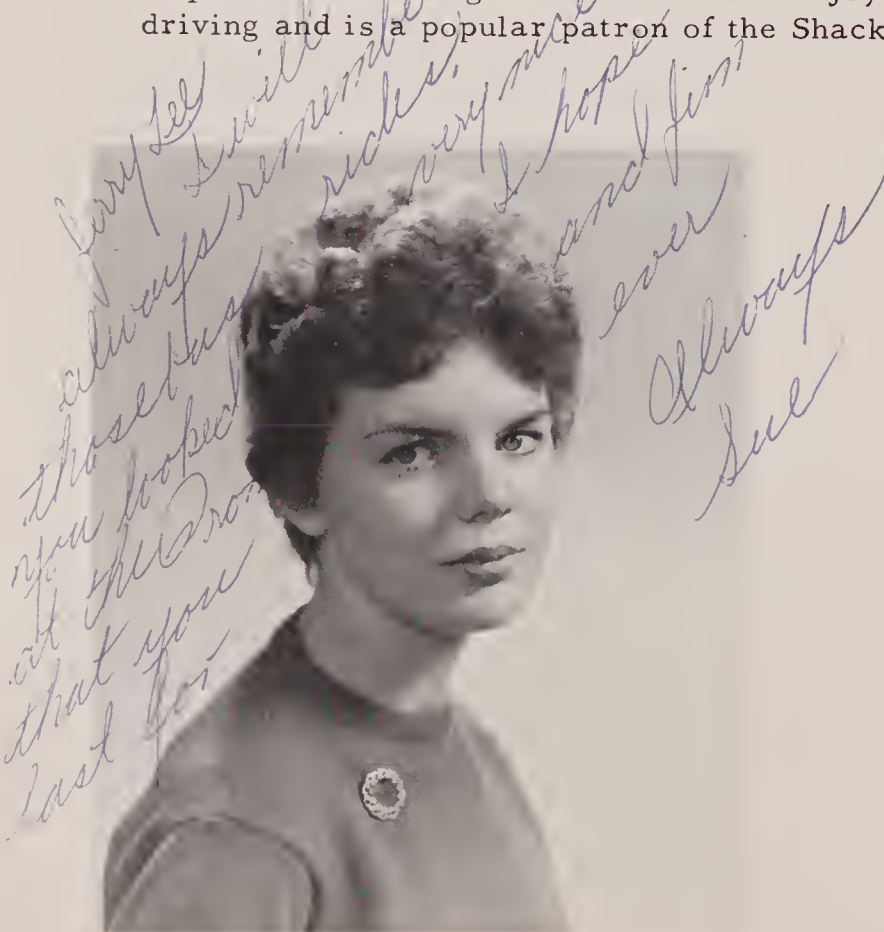 driving and is a popular patron of the Shack
Jerry Lee
I will
always remember
those bus rides,
you looked very nice
at the Prom I hope
that you and Jim
last for ever
Always
Sue